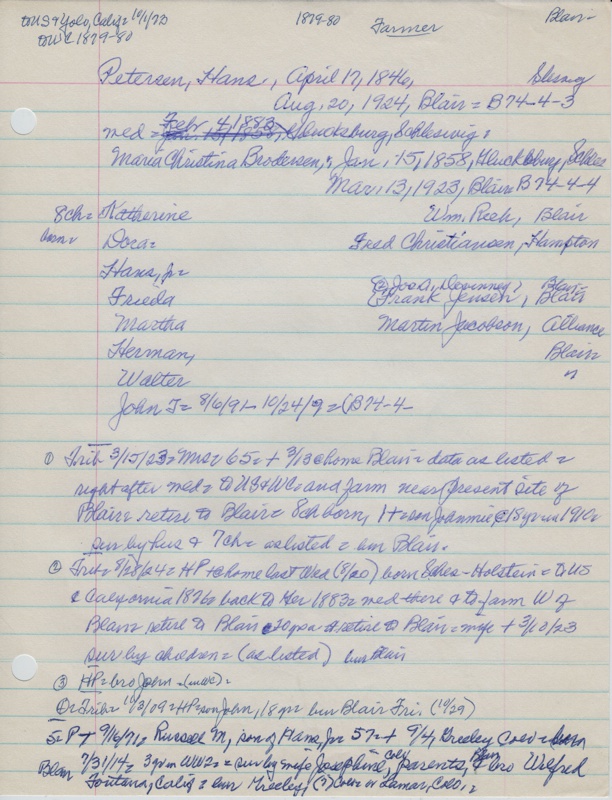 to US & Yolo, Calif = 10/1/73 1879-80 Farmer Blair-
to WC 1879-80
Petersen, Hans, April 17, 1846,
Aug, 20, 1924, Blair = B74-4-3
med = Febr. 4/1883, Glucksburg, Schleswig:
Maria Christina Brodersen, Jan. 15, 1858, Glucksburg, Schles
Mar, 13, 1923, Blair B74-4-4
8ch = Katherine Wm. Reeh, Blair
born = Dora = Fred Christiansen, Hampton
Hans, Jr =
Frieda Frank Jensen, Blair
Martha Martin Jacobson, Alliance
Herman, Blair
Walter "
John T = 8/6/91 - 10/24/9 = (B74-4-
① Trib 3/15/23 = Mrs = 65 = + 3/13 @ home Blair = data as listed =
right after med = to US & WC = and farm near present site of
Blair = retire to Blair = 8ch born, 1 + = son Johnnie @ 18 yr in 1910 =
sur by hus & 7ch = as listed = bur Blair.
② Trib = 8/28/24 = HP + @ home last Wed (8/20) born Schles-Holstein = to US
& California 1876 = back to Ger 1883 = med there & to farm W of
Blair = retire to Blair = wife + 3/10/23
sur by children = (as listed) bur Blair
③ HP = bro John - (in WC) =
Trib = 10/3/09 = HP = son John, 18 yr = bur Blair Fri. (10/29)
+ 9/16/71 = Russell M, son of Hans, Jr = 57 = + 9/4, Greeley Colo = born
Blair 7/31/14 = 3 yr in WW2 = sur by wife Josephine, parents, Blair & bro Wilfred
Fontana, Calif = bur Greeley, (?) Colo = or Lamar, Colo, =